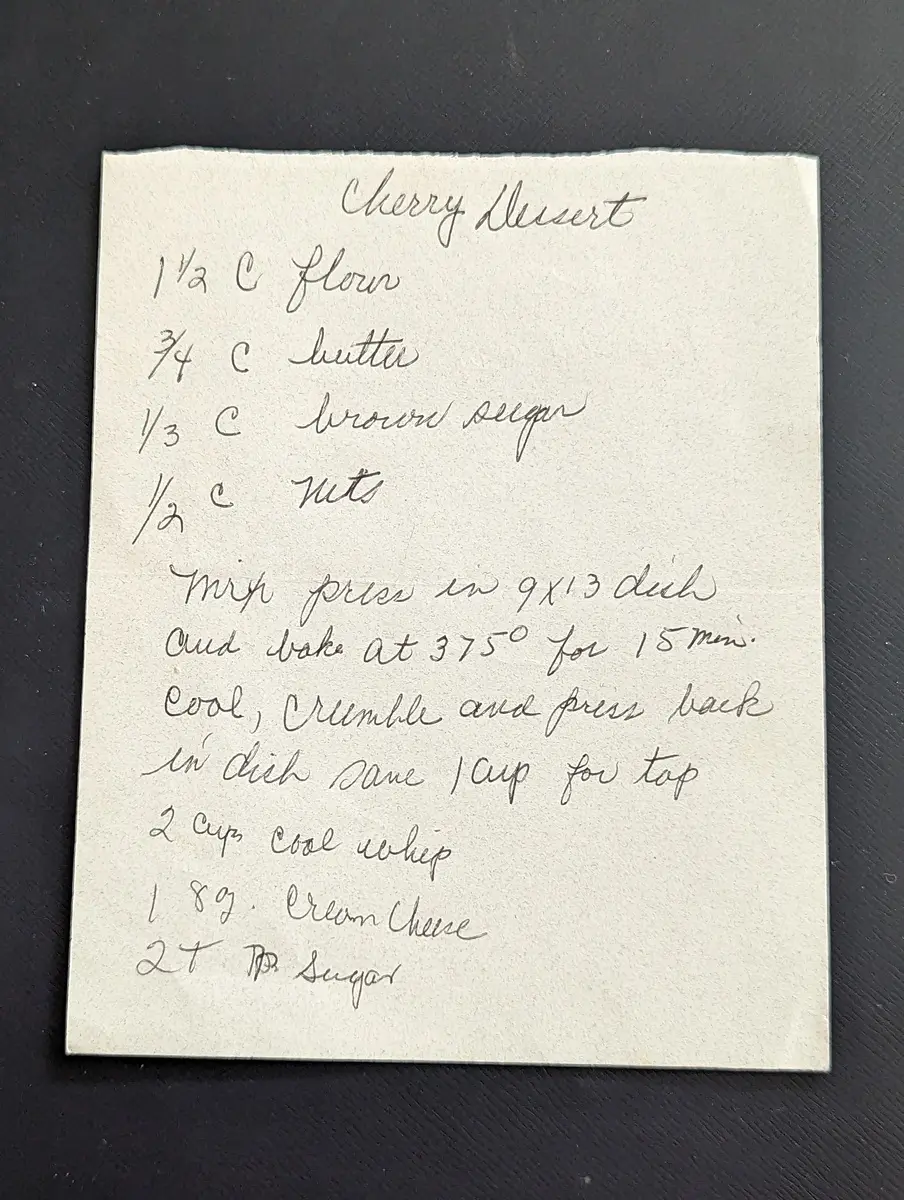 Cherry Dessert
1 1/2 C flour
3/4 C butter
1/3 C brown sugar
1/2 C Nuts
Mix press in 9x13 dish
and bake at 375° for 15 min.
cool, crumble and press back
in dish save 1 cup for top
2 cups cool whip
1 8oz. cream cheese
2 T Sugar